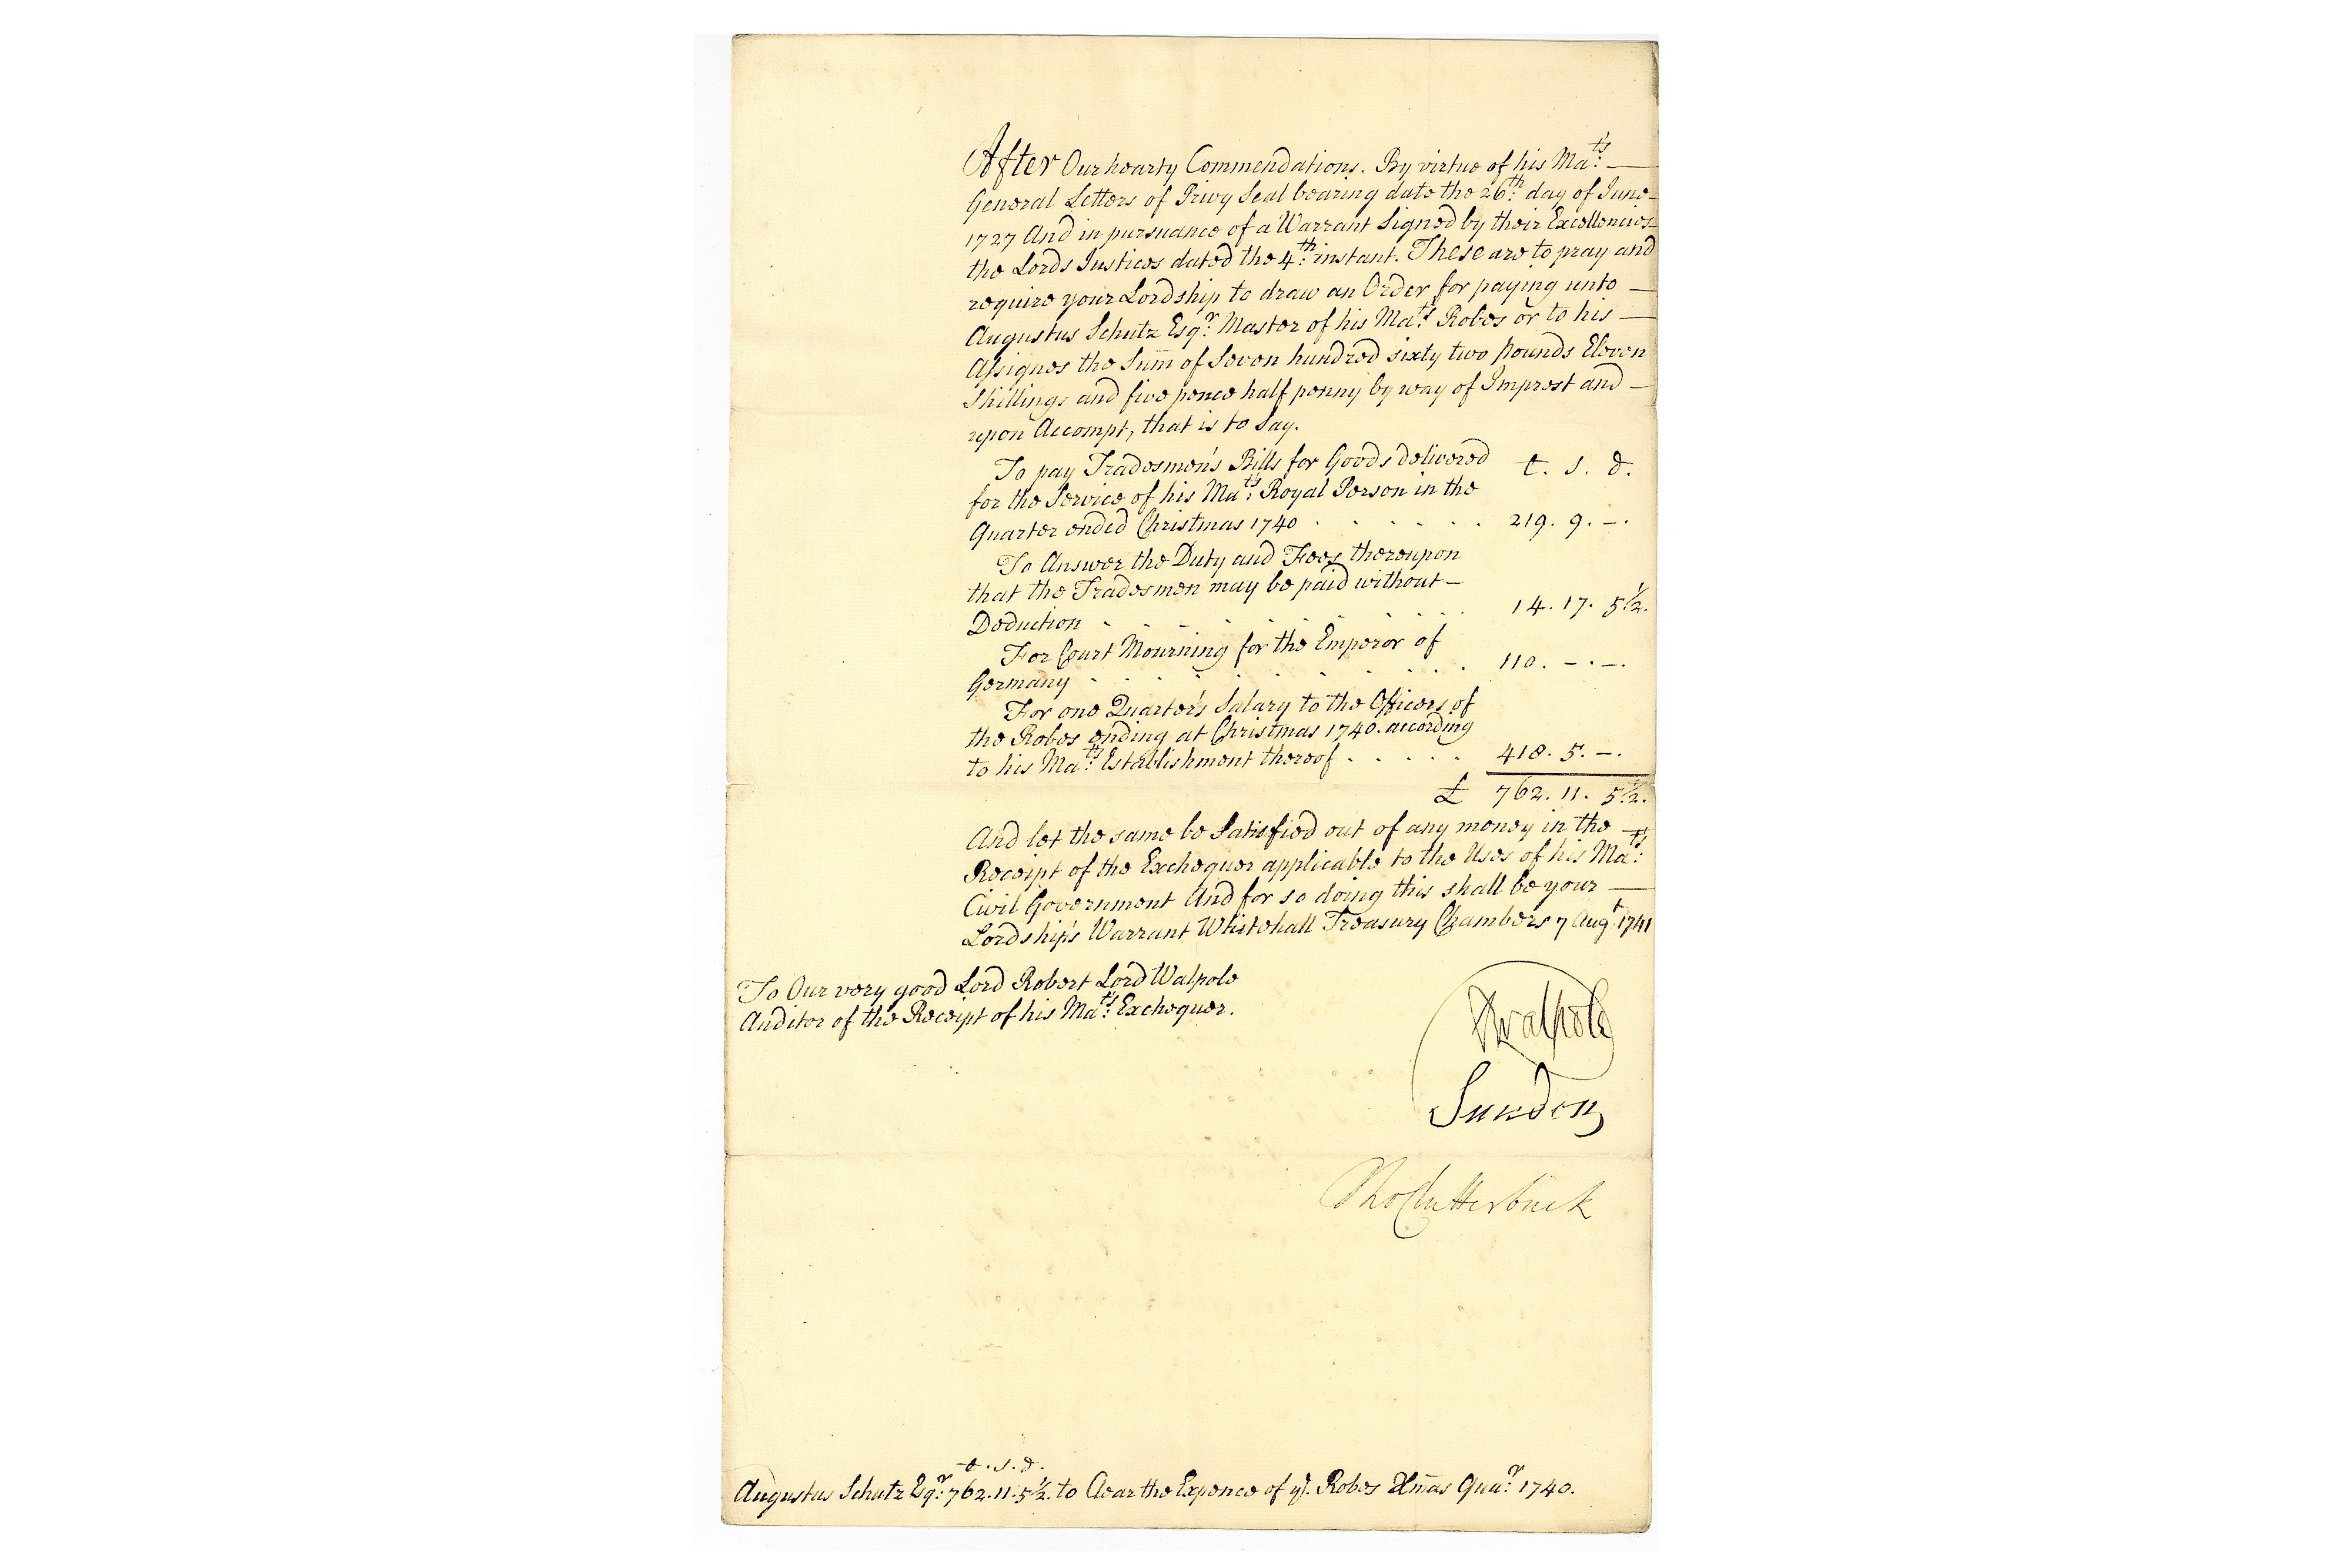 After Our hearty Commendations. By virtue of his Ma:ts —
General Letters of Privy Seal bearing date the 26:th day of June –
1727 And in pursuance of a Warrant Signed by their Excellencies –
the Lords Justices dated the 4:th instant. These are to pray and
require your Lordship to draw an Order for paying unto —
Augustus Schutz Esq:r Master of his Ma:ts Robes or to his —
Assignes the Sum̄ of Seven hundred sixty two pounds Eleven
Shillings and five pence half penny by way of Imprest and —
upon Accompt, that is to Say.
To pay Tradesmen's Bills for Goods delivered £. s. d.
for the Service of his Ma:ts Royal Person in the
Quarter ended Christmas 1740 . . . . . . 219. 9. –.
To Answer the Duty and Fees thereupon
that the Tradesmen may be paid without –
Deduction . . . . . . . . . . 14. 17. 5½.
For Court Mourning for the Emperor of
Germany . . . . . . . . . . 110. –. –.
For one Quarter's Salary to the Officers of
the Robes ending at Christmas 1740. according
to his Ma:ts Establishment thereof . . . . . 418. 5. –.
£ 762. 11. 5½.
And let the same be Satisfied out of any money in the —
Receipt of the Exchequer applicable to the Uses of his Ma:ts
Civil Government And for so doing this shall be your —
Lordship's Warrant Whitehall Treasury Chambers 7 Augt. 1741
To Our very good Lord Robert Lord Walpole
Auditor of the Receipt of his Ma:ts Exchequer.
RWalpole
Sundon
Tho Clutterbuck
£. s. d.
Augustus Schutz Esq:r 762. 11. 5½. to Clear the Expence of ye. Robes Xm̄as Qua:r 1740.